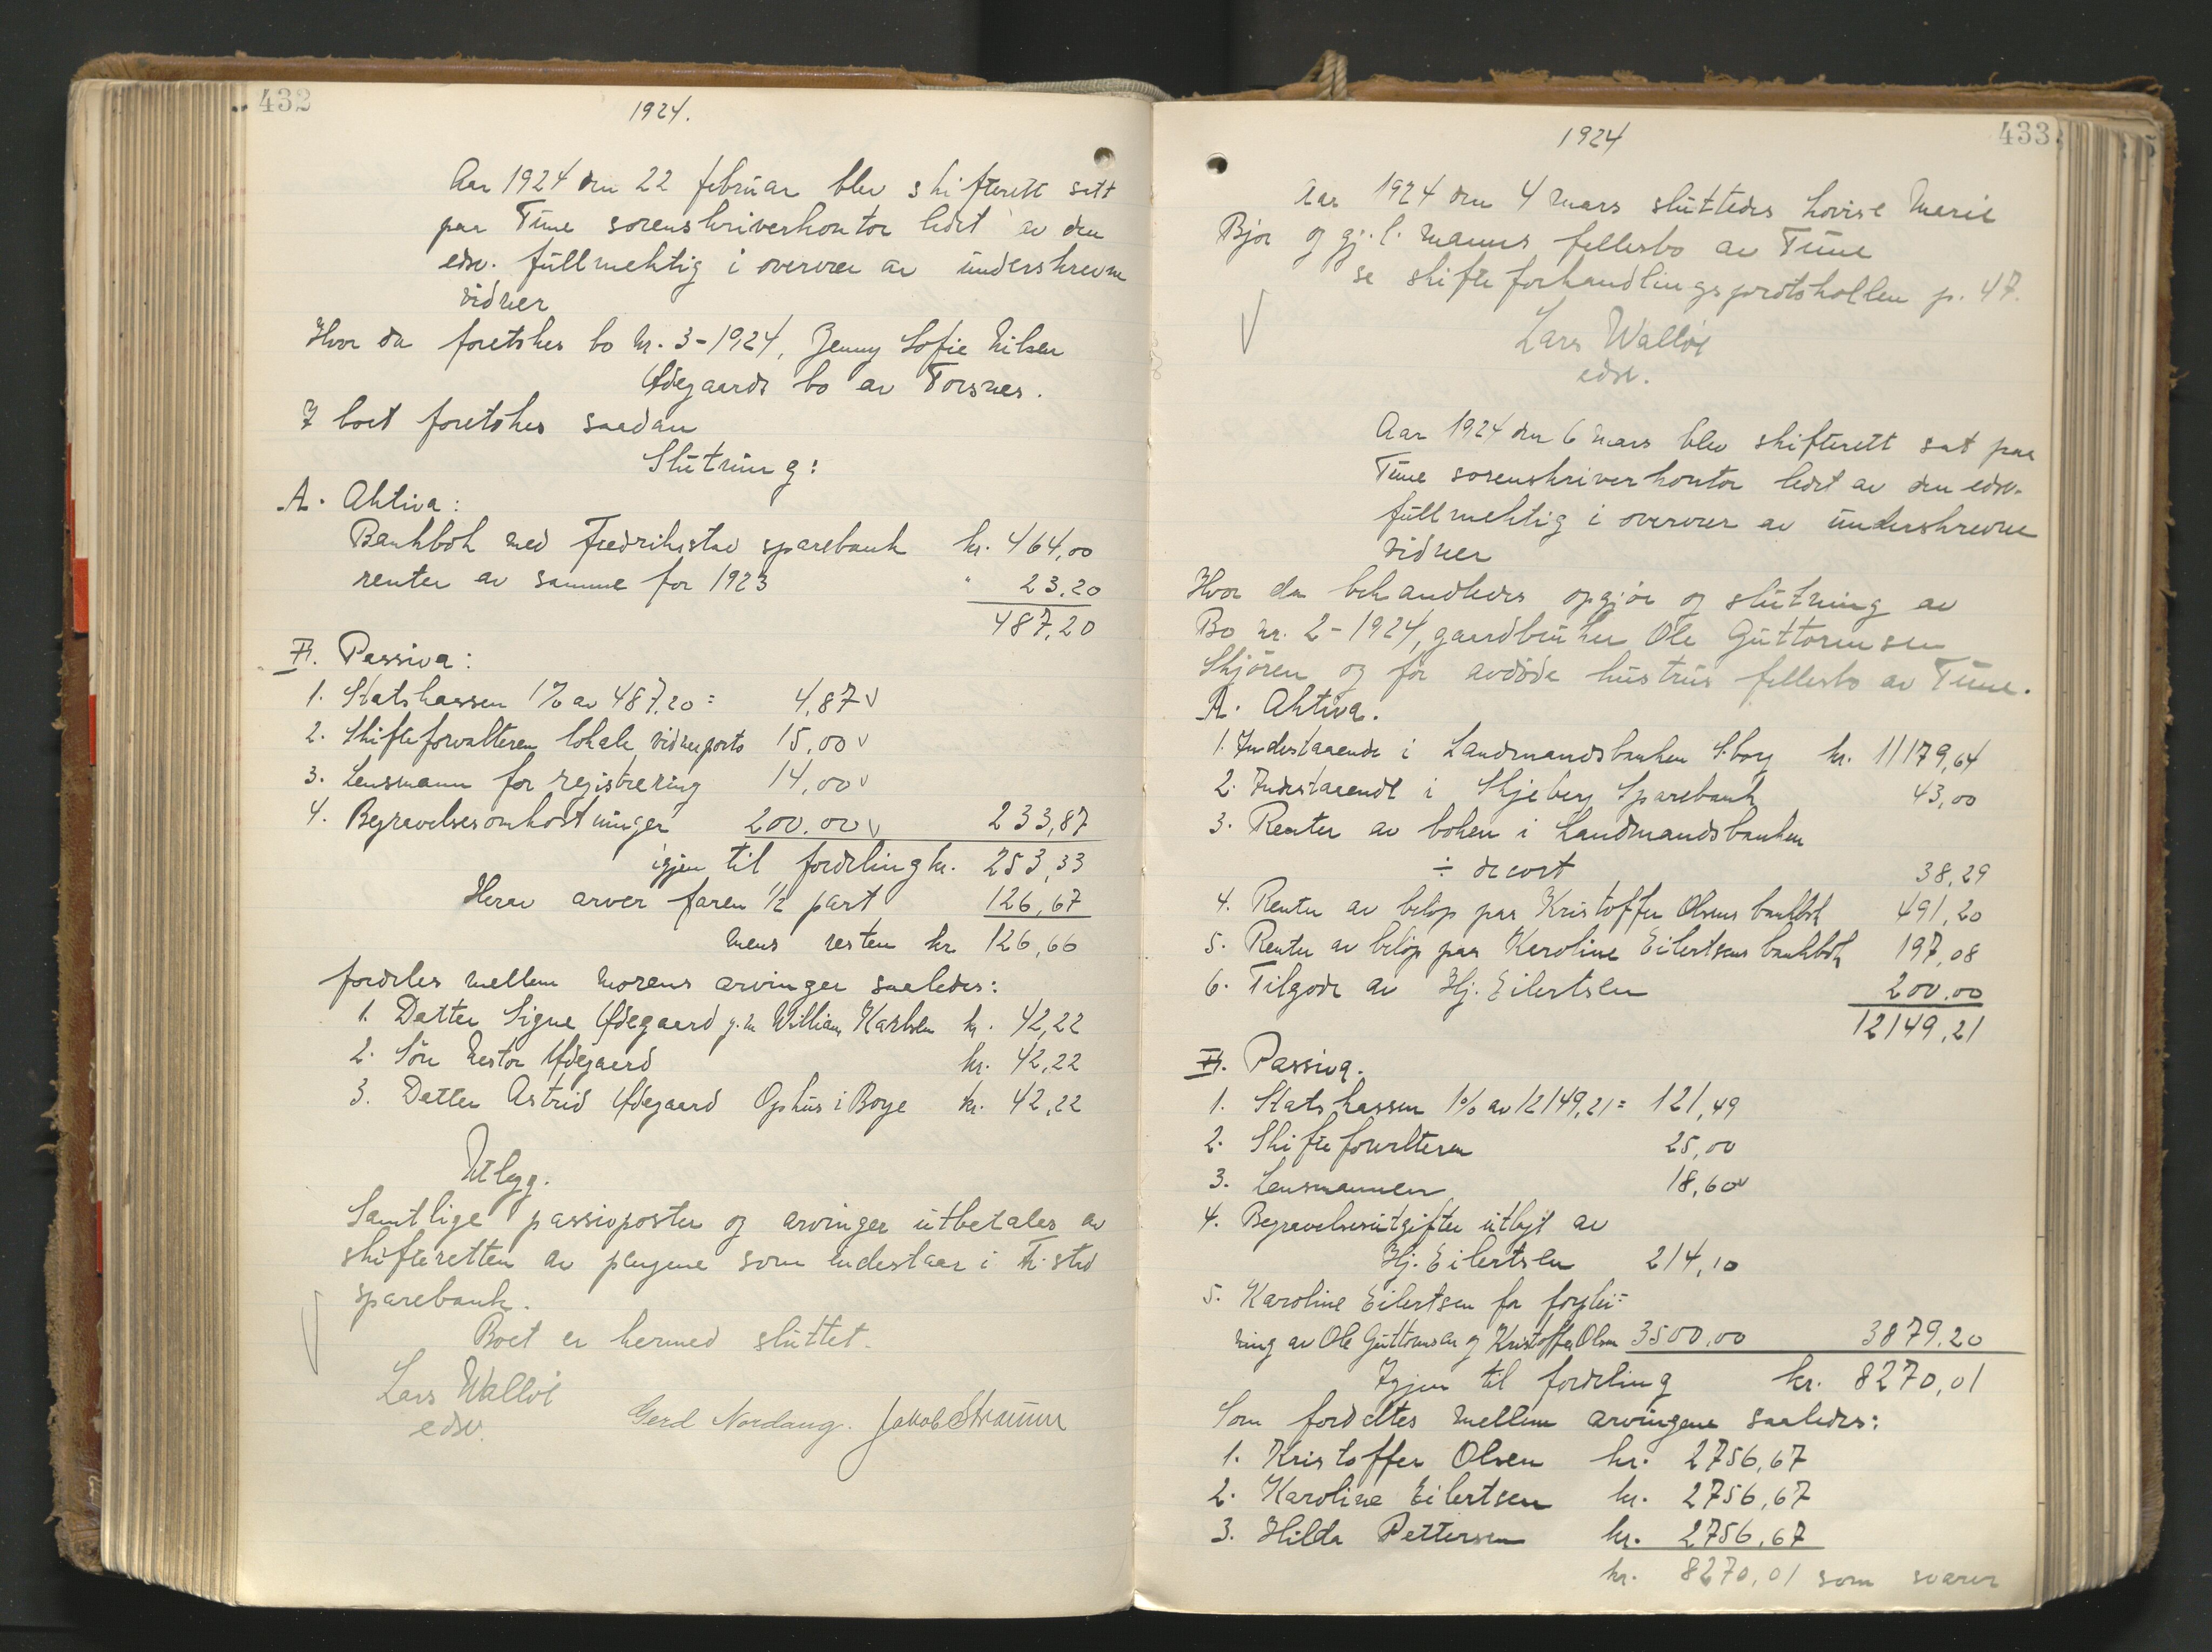 432
1924.
Aar 1924 den 22 februar blev skifterett satt
paa Tune sorenskriverkontor ledet av den
edsv. fullmektig i overvær av underskrevne
vidner
Hvor da foretokes bo nr. 3-1924, Jenny Sofie Nilsen
Ødegaards bo av Torsnes.
I boet foretokes saadan
Slutning:
A. Aktiva:
Bankbok med Fredrikstad sparebank kr. 464,00
renter av samme for 1923 " 23.20
487,20
II. Passiva:
1. Statskassen 1% av 487.20 = 4,87 √
2. Skifteforvalteren lokale vidner porto 15,00 √
3. Lensmann for registrering 14,00 √
4. Begravelsesomkostninger 200.00 √ 233,87
igjen til fordeling kr. 253,33
Herav arver faren 1/2 part 126,67
mens resten kr 126,66
fordeles mellem morens arvinger saaledes:
1. Datter Signe Ødegaard g.m. William Karlsen kr. 42,22
2. Sön Nestor Ødegaard kr. 42,22
3. Datter Astrid Ødegaard Ophus i Borge kr. 42,22
Utlegg.
Samtlige passivposter og arvinger utbetales av
skifteretten av pengene som indestaar i Fr.stad
sparebank.
Boet er hermed sluttet.
Lars Walløe
edsv.
Gerd Nordaug. Jakob Straume
433
1924
Aar 1924 den 4 mars sluttedes Lovise Marie
Bjor og gj.l. manns fellesbo av Tune
se skifteforhandlingsprotokollen p. 47.
Lars Walløe
edsv.
Aar 1924 den 6 mars blev skifterett sat paa
Tune sorenskriverkontor ledet av den edsv.
fullmektig i overvær av underskrevne
vidner
Hvor da behandledes opgjör og slutning av
Bo nr. 2-1924, gaardbruker Ole Guttormsen
Skjören og för avdöde hustrus fellesbo av Tune.
A. Aktiva.
1. Indestaaende i Landmandsbanken S.borg kr. 11179,64
2. Indestaaende i Skjeberg Sparebank 43,00
3. Renter av boken i Landmandsbanken
÷ decort 38,29
4. Renter av belöp paa Kristoffer Olsens bankbok 491,20
5. Renter av belöp paa Karoline Eilertsens bankbok 197,08
6. Tilgode av Hj. Eilertsen 200.00
12149,21
II. Passiva.
1. Statskassen 1% av 12149,21 = 121,49
2. Skifteforvalteren 25,00
3. Lensmannen 18,60 √
4. Begravelsesutgifter utlagt av
Hj. Eilertsen 214,10
5. Karoline Eilertsen for forplei=
ning av Ole Guttormsen og Kristoffer Olsen 3500,00 3879.20
Igjen til fordeling kr. 8270,01
Som fordeltes mellem arvingene saaledes:
1. Kristoffer Olsen kr. 2756,67
2. Karoline Eilertsen kr. 2756,67
3. Hilda Pettersen kr. 2756,67
kr. 8270,01 som svarer